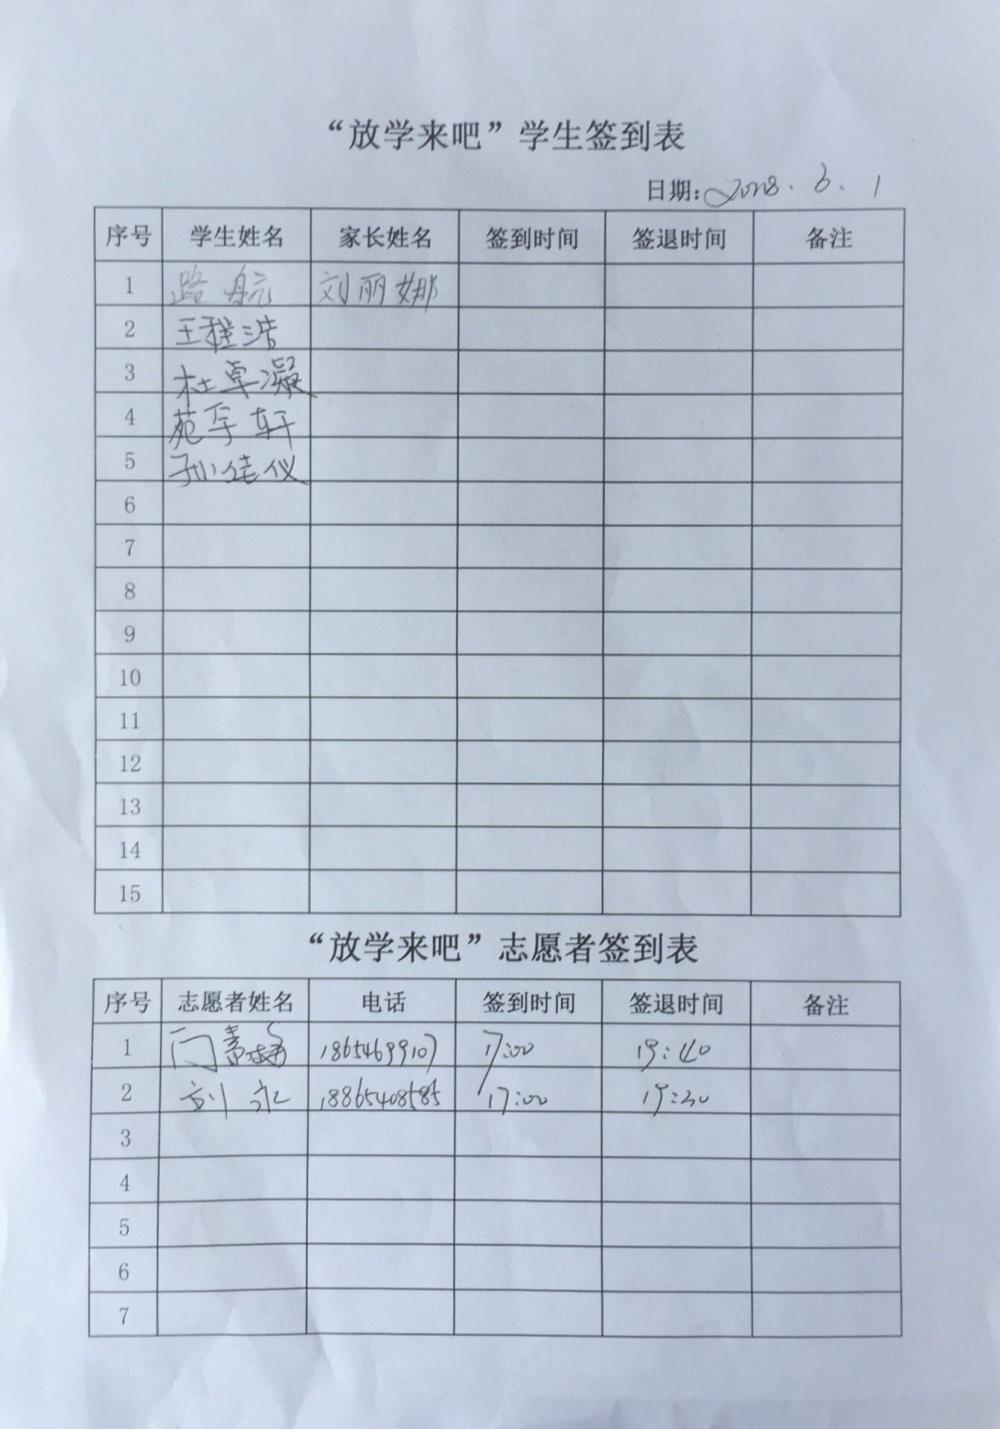 “放学来吧”学生签到表
日期: 2018.6.1
序号 学生姓名 家长姓名 签到时间 签退时间 备注
1 路航 刘丽娜
2 王程浩
3 杜卓凝
4 苑宇轩
5 孙佳仪
6
7
8
9
10
11
12
13
14
15
“放学来吧”志愿者签到表
序号 志愿者姓名 电话 签到时间 签退时间 备注
1 闫 18654699107 17:00 19:40
2 刘永 18865408585 17:00 19:30
3
4
5
6
7